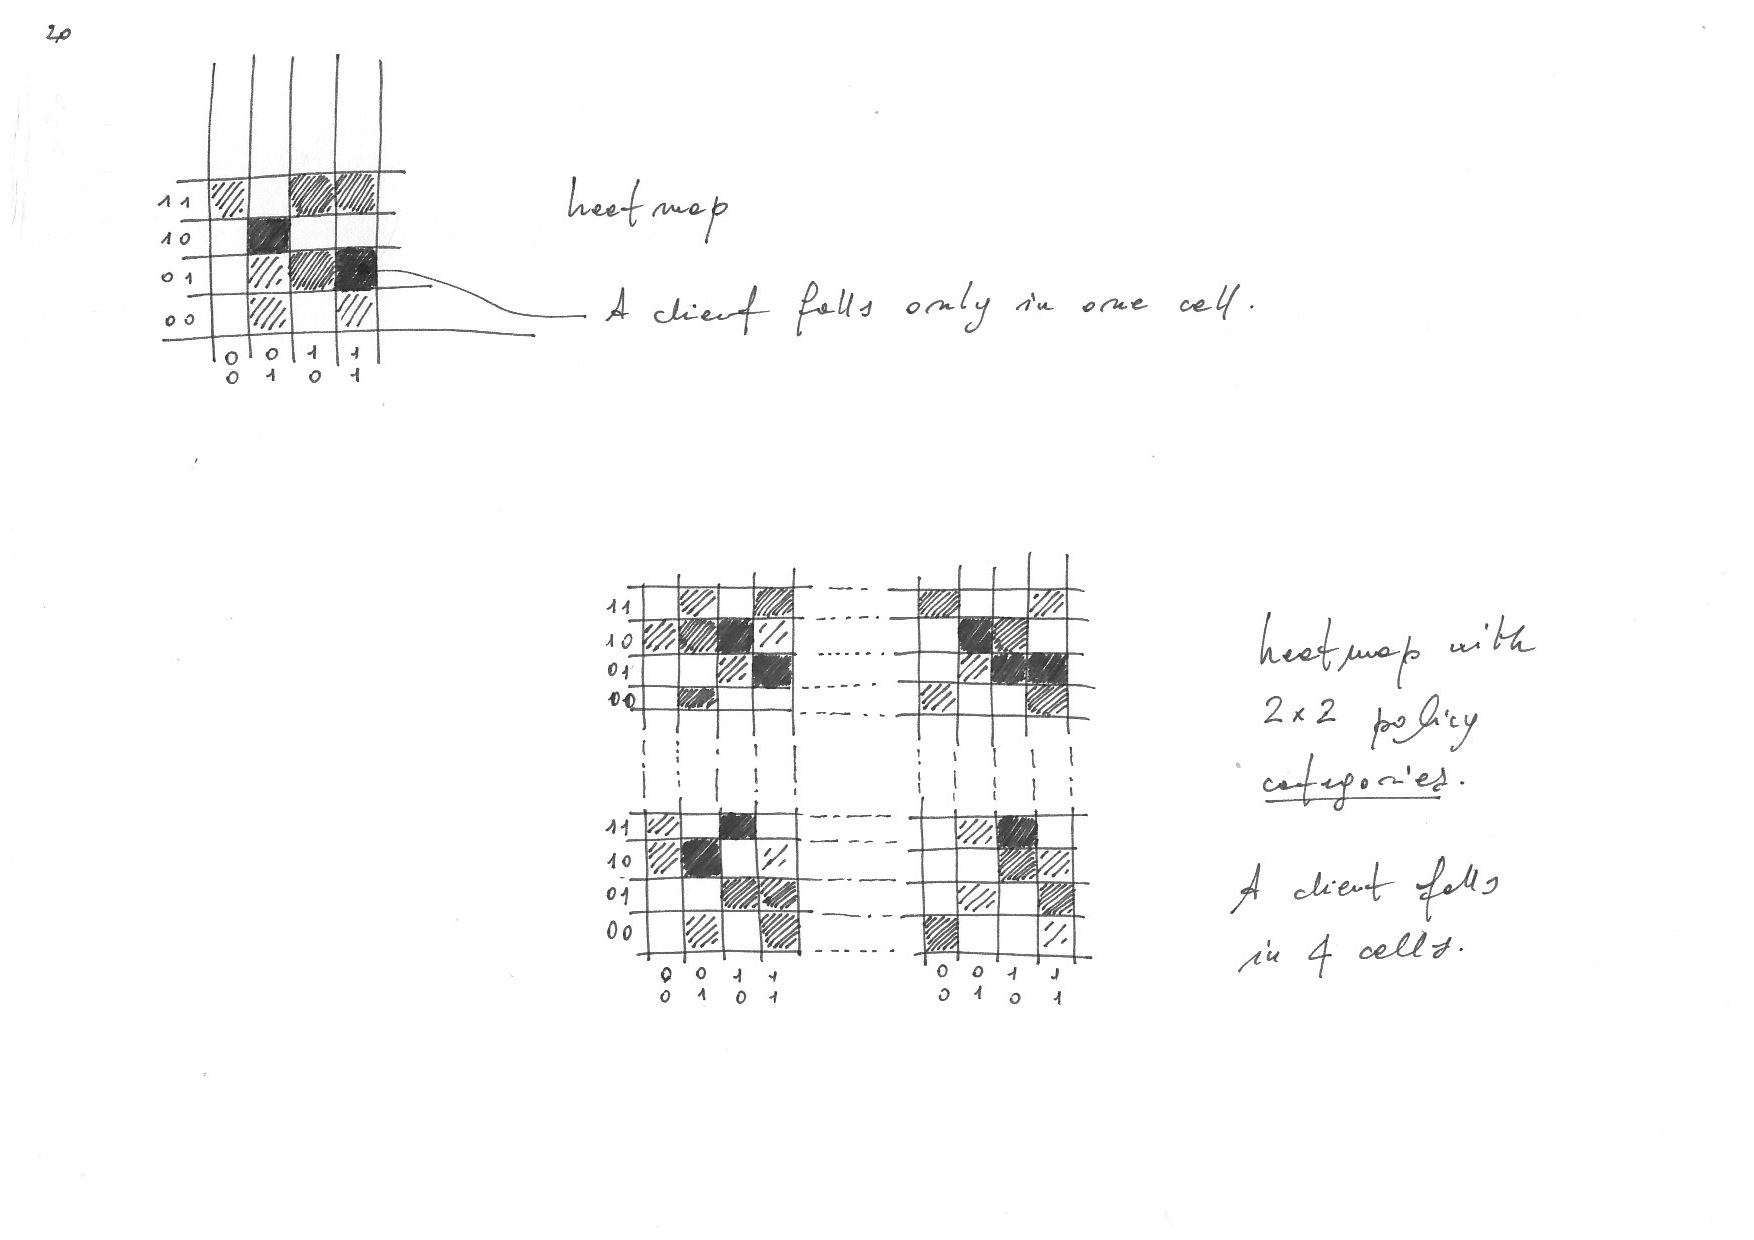 20
11
10
01
00
0 0 1 1
0 1 0 1
heatmap
A client falls only in one cell.
11
10
01
00
11
10
01
00
0 0 1 1
0 1 0 1
0 0 1 1
0 1 0 1
heatmap with
2x2 policy
categories.
A client falls
in 4 cells.